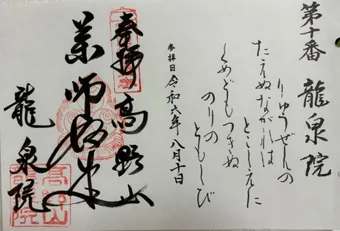 第十番 龍泉院
りゅうぜんの
たえぬながれは
とこしえに
くめどもつきぬ
のりの
ともしび
参拝日 令和六年 八月十日
奉拝 高野山
薬師如来
龍泉院